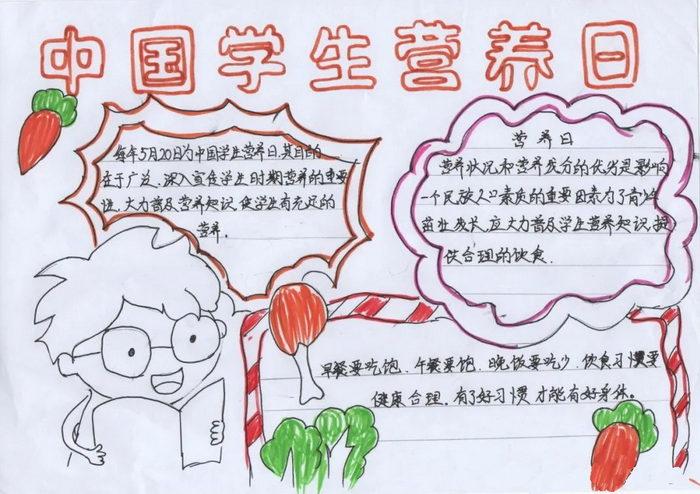 中国学生营养日
每年5月20日为中国学生营养日,其目的
在于广泛、深入宣传学生时期营养的重要
性,大力普及营养知识,使学生有充足的
营养。
营养日
营养状况和营养成分的优劣是影响
一个民族人口素质的重要因素,为了青少年
茁壮成长,应大力普及学生营养知识,提
供合理的饮食.
早餐要吃饱,午餐要饱,晚饭要吃少,饮食习惯要
健康合理,有了好习惯才能有好身体。